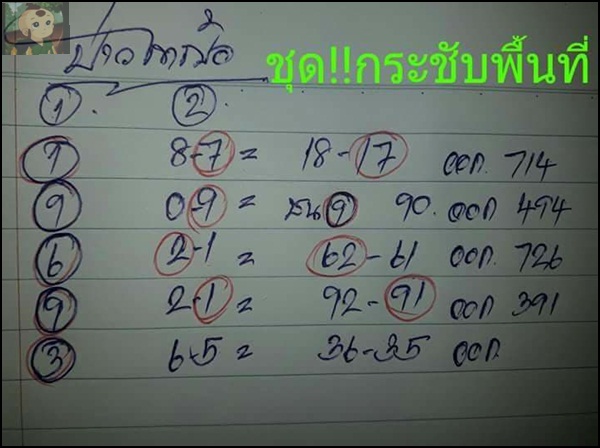 ชุด!!กระชับพื้นที่
① ②
① 8-7 = 18-17 ออก. 714
⑨ 0-9 = ชน ⑨ 90. ออก 494
⑥ 2-1 = 62-61 ออก. 726
⑨ 2-1 = 92-91 ออก 391
③ 6-5 = 36-35 ออก